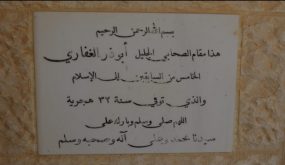 بسم الله الرحمن الرحيم
هذا مقام الصحابي الجليل أبو ذر الغفاري
الخامس من السابقين إلى الإسلام
والذي توفي سنة ٣٢ هجرية
اللهم صلي وسلم وبارك على
سيدنا محمد وعلى آله وصحبه وسلم